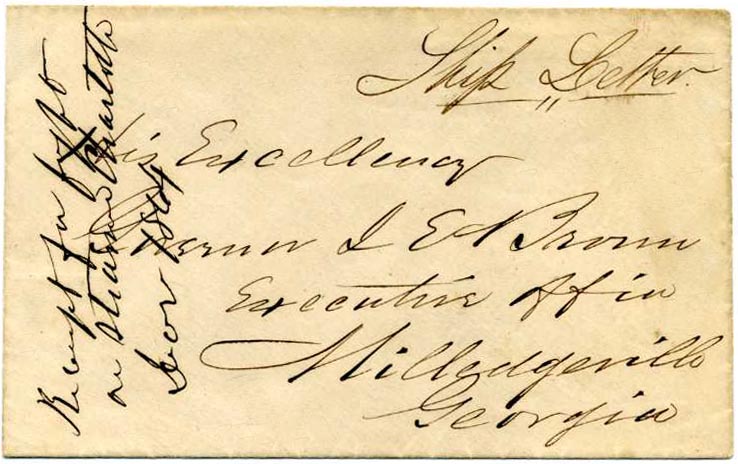 Ship Letter
His Excellency
Governor J E Brown
Executive Office
Milledgeville
Georgia
Receipt for
on steamer
1864